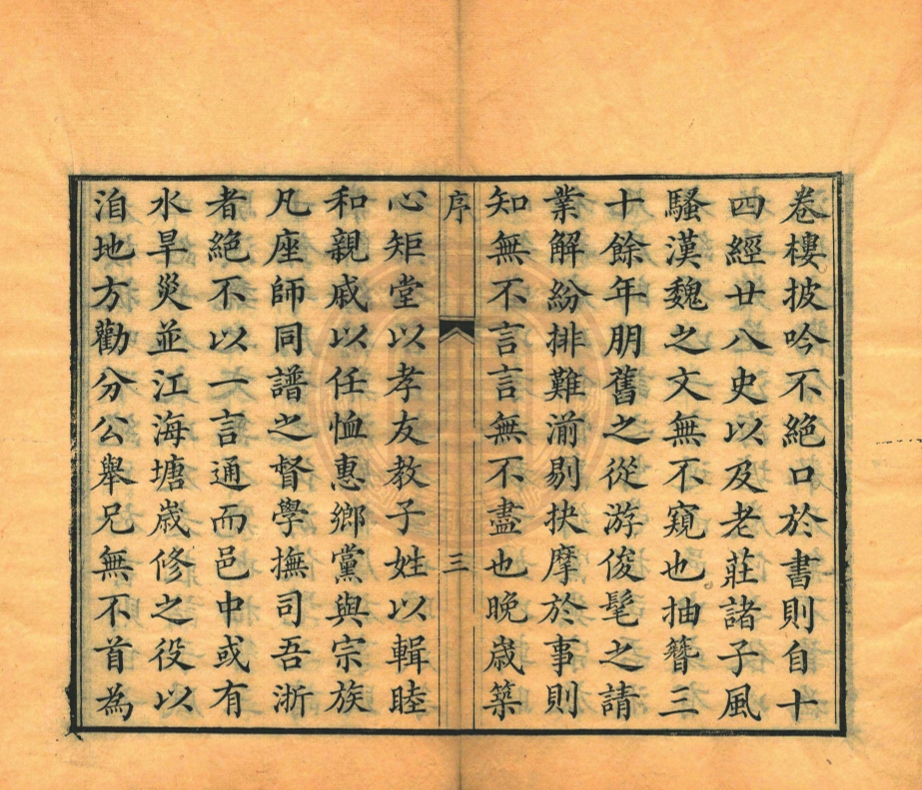 卷樓披吟不絕口於書則自十
四經廿八史以及老莊諸子風
騷漢魏之文無不窺也抽簪三
十餘年朋舊之從游俊髦之請
業解紛排難湔剔抉摩於事則
知無不言言無不盡也晚歲築
序
三
心矩堂以孝友教子姓以輯睦
和親戚以任恤惠鄉黨與宗族
凡座師同譜之督學撫司吾浙
者絕不以一言通而邑中或有
水旱災並江海塘歲修之役以
洎地方勸分公舉兄無不首為